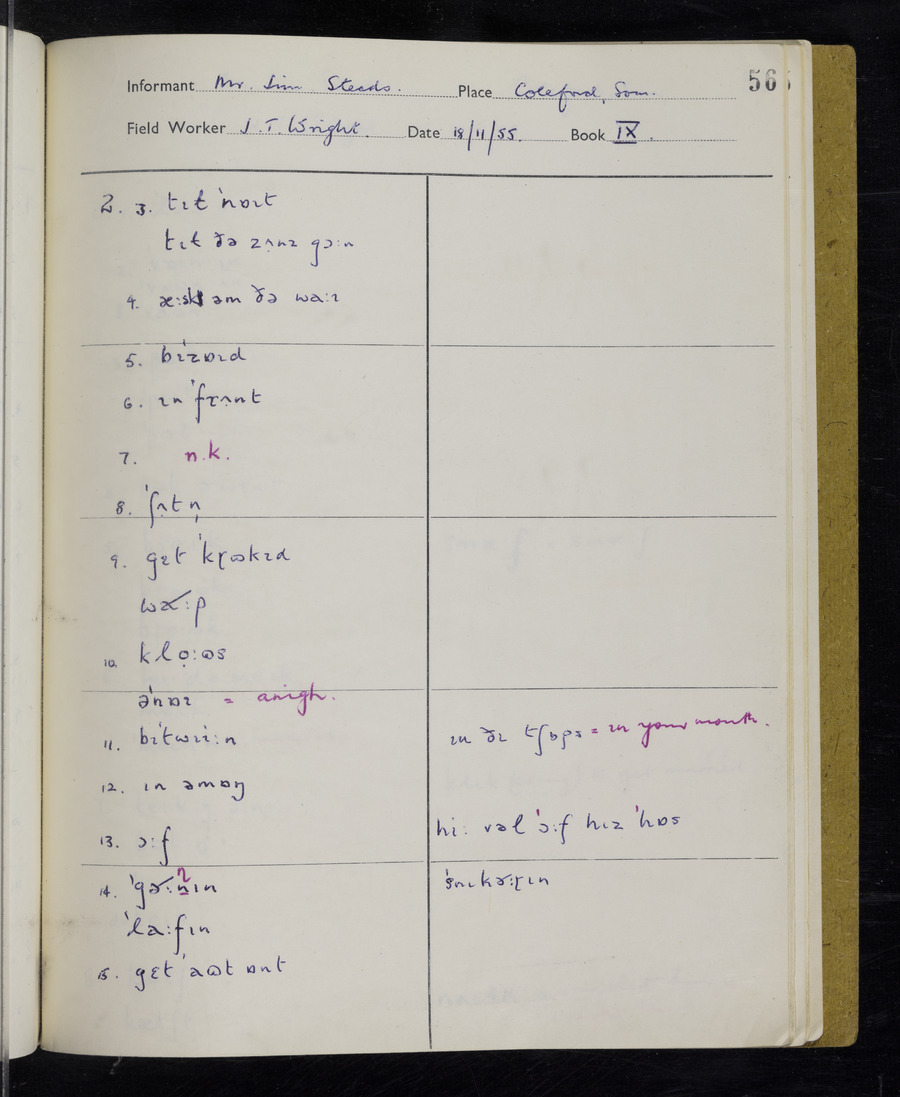 Informant Mr. Jim Steeds. Place Coleford, Som. 56
Field Worker J. T. Wright. Date 18/11/55. Book IX.
2. 3. tɪt ˈnɒɪt
tɪt ðə zʌnz gɔːn
4. æːsk əm ðə waːɪ
5. bɪˈzɒɪd
6. ɪn ˈfɽʌnt
7. n.k.
8. ˈʃʌtn̩
9. gɛt ˈkɽʊkɪd
10. klọːʊs
əˈnɒɪ = anigh.
11. bɪˈtwɪiːn
ɪn = in your mouth.
12. ɪn əmɒŋ
13. ɔːf
hiː vəl ˈɔːf hɪz ˈhɒs
14.
ˈsnɪkəːɽɪn
ˈlaːfɪn
15. gɛt ˈaʊt ɒnt